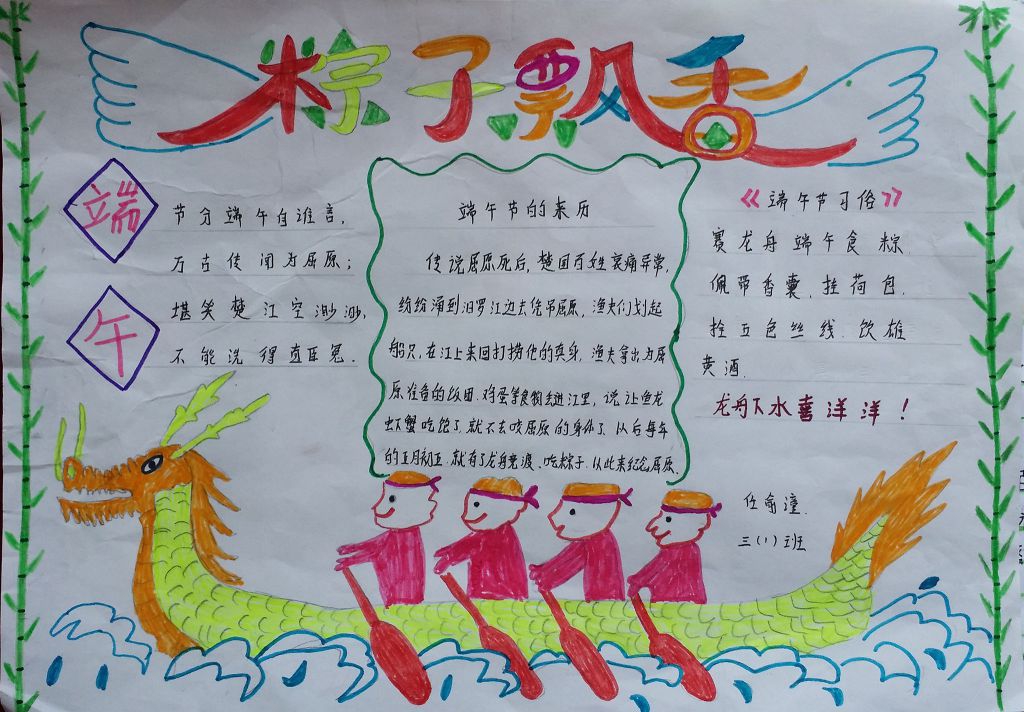 粽子飘香
端
午
节分端午自谁言，
万古传闻为屈原；
堪笑楚江空渺渺，
不能洗得直臣冤。
端午节的来历
传说屈原死后，楚国百姓哀痛异常，
纷纷涌到汨罗江边去凭吊屈原，渔夫们划起
船只，在江上来回打捞他的真身，渔夫拿出为屈
原准备的饭团、鸡蛋等食物丢进江里，说让鱼龙
虾蟹吃饱了，就不去咬屈原的身体了，从后每年
的五月初五，就有了龙舟竞渡、吃粽子，从此来纪念屈原、
《端午节习俗》
赛龙舟 端午食 粽
佩带香囊、挂荷包、
拴五色丝线、饮雄
黄酒、
龙舟下水喜洋洋！
任俞潼
三(1)班